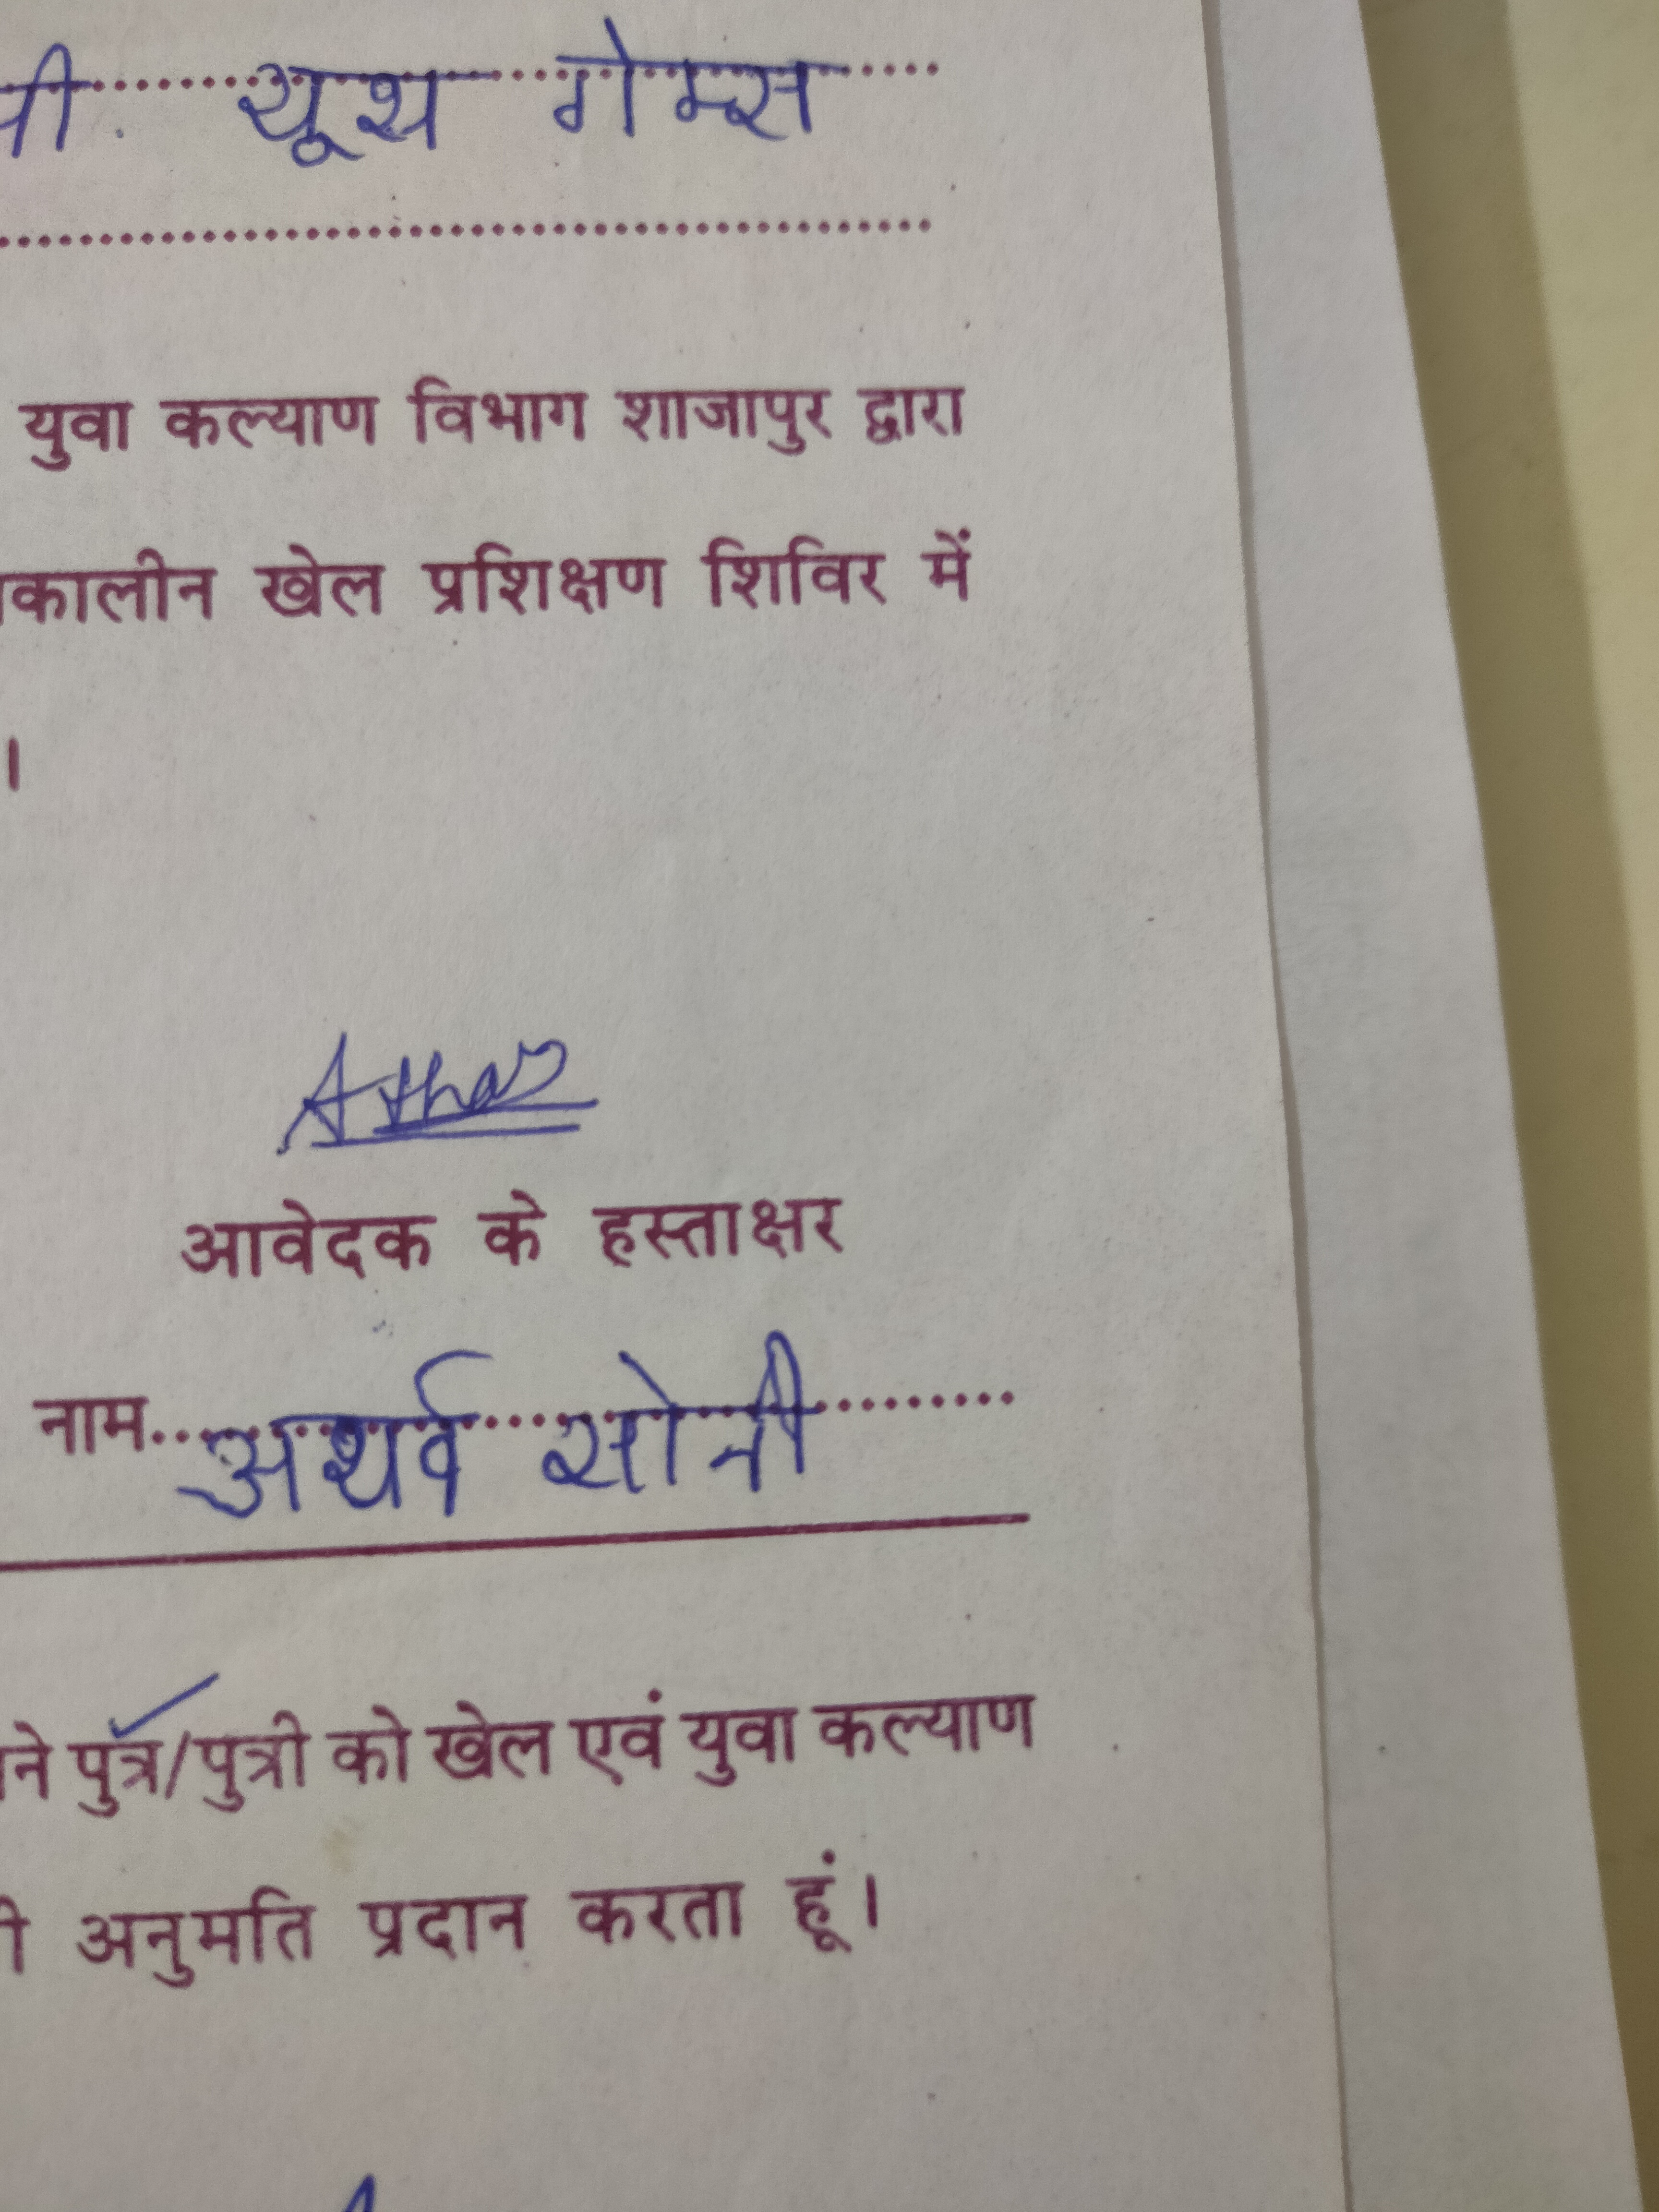 यूथ गेम्स
युवा कल्याण विभाग शाजापुर द्वारा
कालीन खेल प्रशिक्षण शिविर में
।
Atharv
आवेदक के हस्ताक्षर
नाम अथर्व सोनी
ने पुत्र/पुत्री को खेल एवं युवा कल्याण
अनुमति प्रदान करता हूं।